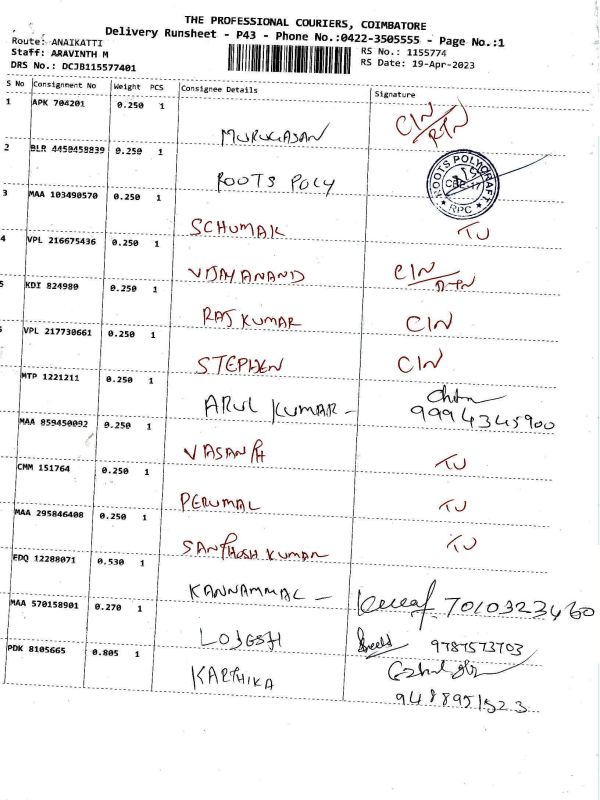 THE PROFESSIONAL COURIERS, COIMBATORE
Delivery Runsheet - P43 - Phone No.:0422-3505555 - Page No.:1
Route: ANAIKATTI
Staff: ARAVINTH M
DRS No.: DCJB115577401
RS No.: 1155774
RS Date: 19-Apr-2023
S No Consignment No Weight PCS Consignee Details Signature
1 APK 704201 0.250 1 MURUGASAN CIN RTN
2 BLR 4450458839 0.250 1 ROOTS POLY ROOTS POLYCRAFT CBE-17 RPC
3 MAA 103490570 0.250 1 SCHUMAK TU
4 VPL 216675436 0.250 1 VIJAYANAND CIN RTN
5 KDI 824980 0.250 1 RAJ KUMAR CIN
VPL 217730661 0.250 1 STEPHEN CIN
MTP 1221211 0.250 1 ARUL KUMAR - 9994345900
MAA 859450092 0.250 1 VASANTH TU
CMM 151764 0.250 1 PERUMAL TU
MAA 295846408 0.250 1 SANTHOSH KUMAR TU
EDQ 12288071 0.530 1 KANNAMMAL - 7010323460
MAA 570158901 0.270 1 LOJESH 9787573703
PDK 8105665 0.805 1 KARTHIKA 9488951523